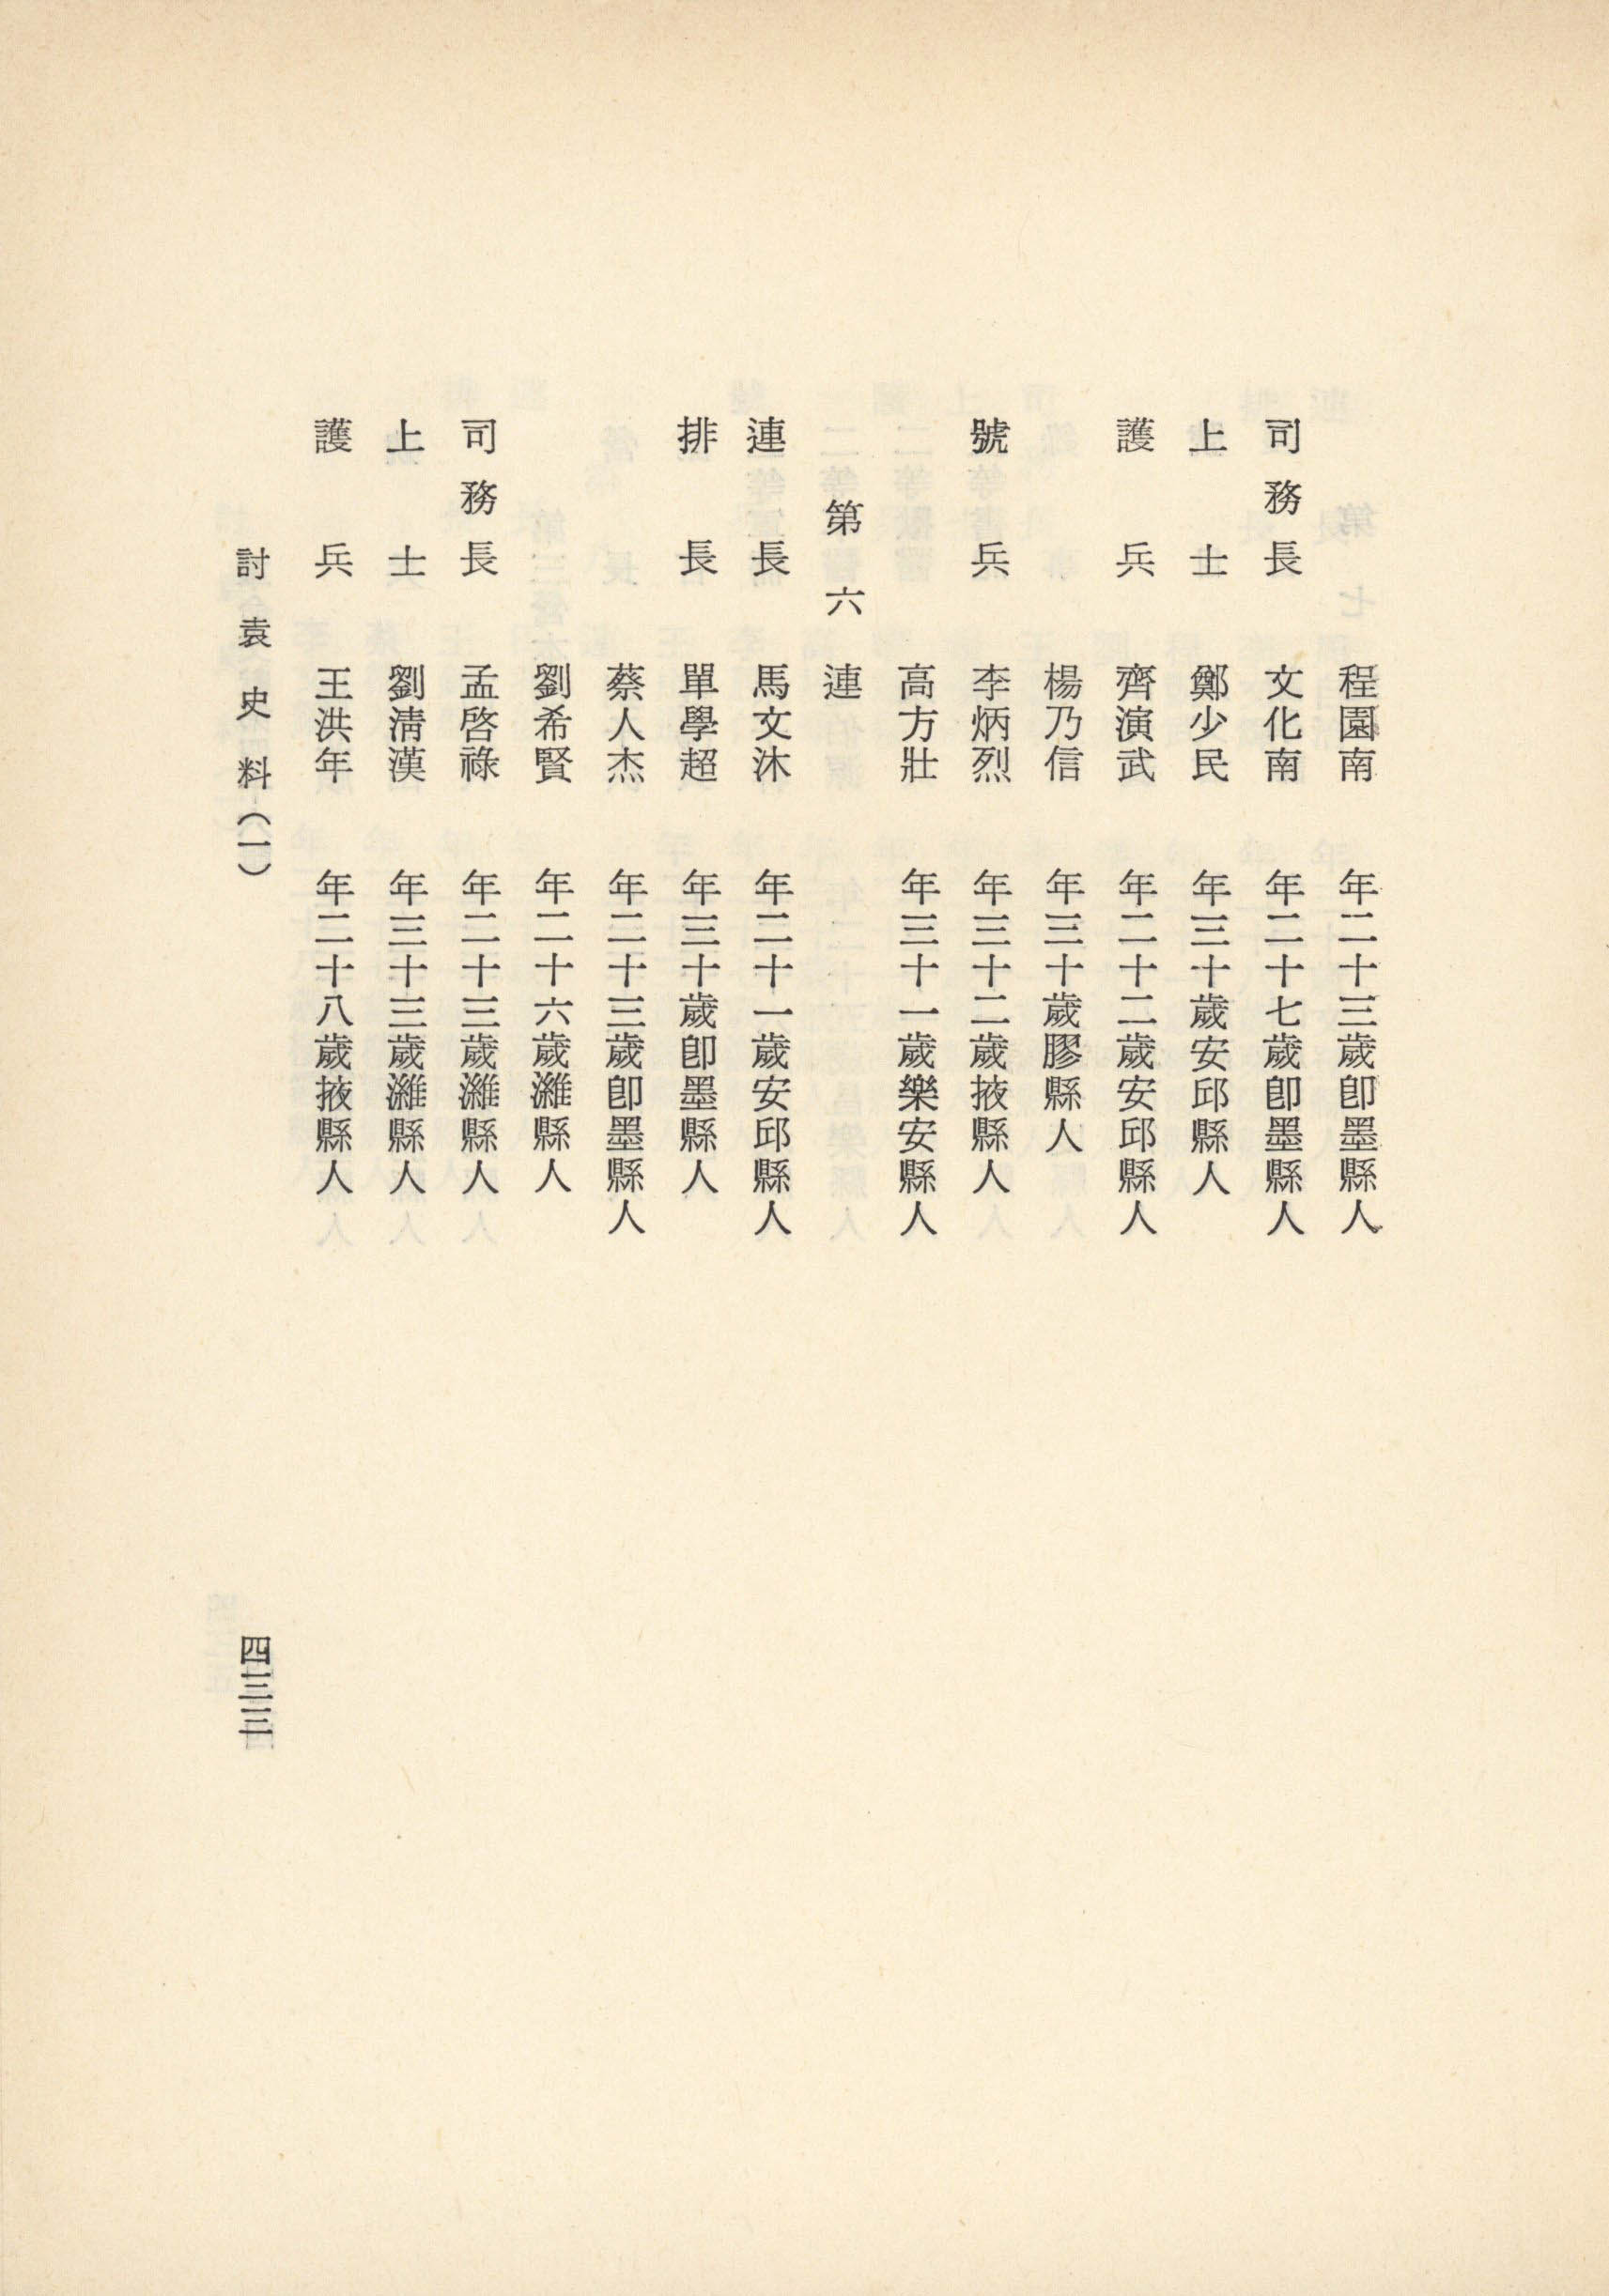 程園南　年二十三歲卽墨縣人
司務長　文化南　年二十七歲卽墨縣人
上士　鄭少民　年三十歲安邱縣人
護兵　齊演武　年二十二歲安邱縣人
楊乃信　年三十歲膠縣人
號兵　李炳烈　年三十二歲掖縣人
高方壯　年三十一歲樂安縣人
第六連
連長　馬文沐　年二十一歲安邱縣人
排長　單學超　年三十歲卽墨縣人
蔡人杰　年二十三歲卽墨縣人
劉希賢　年二十六歲濰縣人
司務長　孟啓祿　年二十三歲濰縣人
上士　劉淸漢　年三十三歲濰縣人
護兵　王洪年　年二十八歲掖縣人
討袁史料（一）
四三三